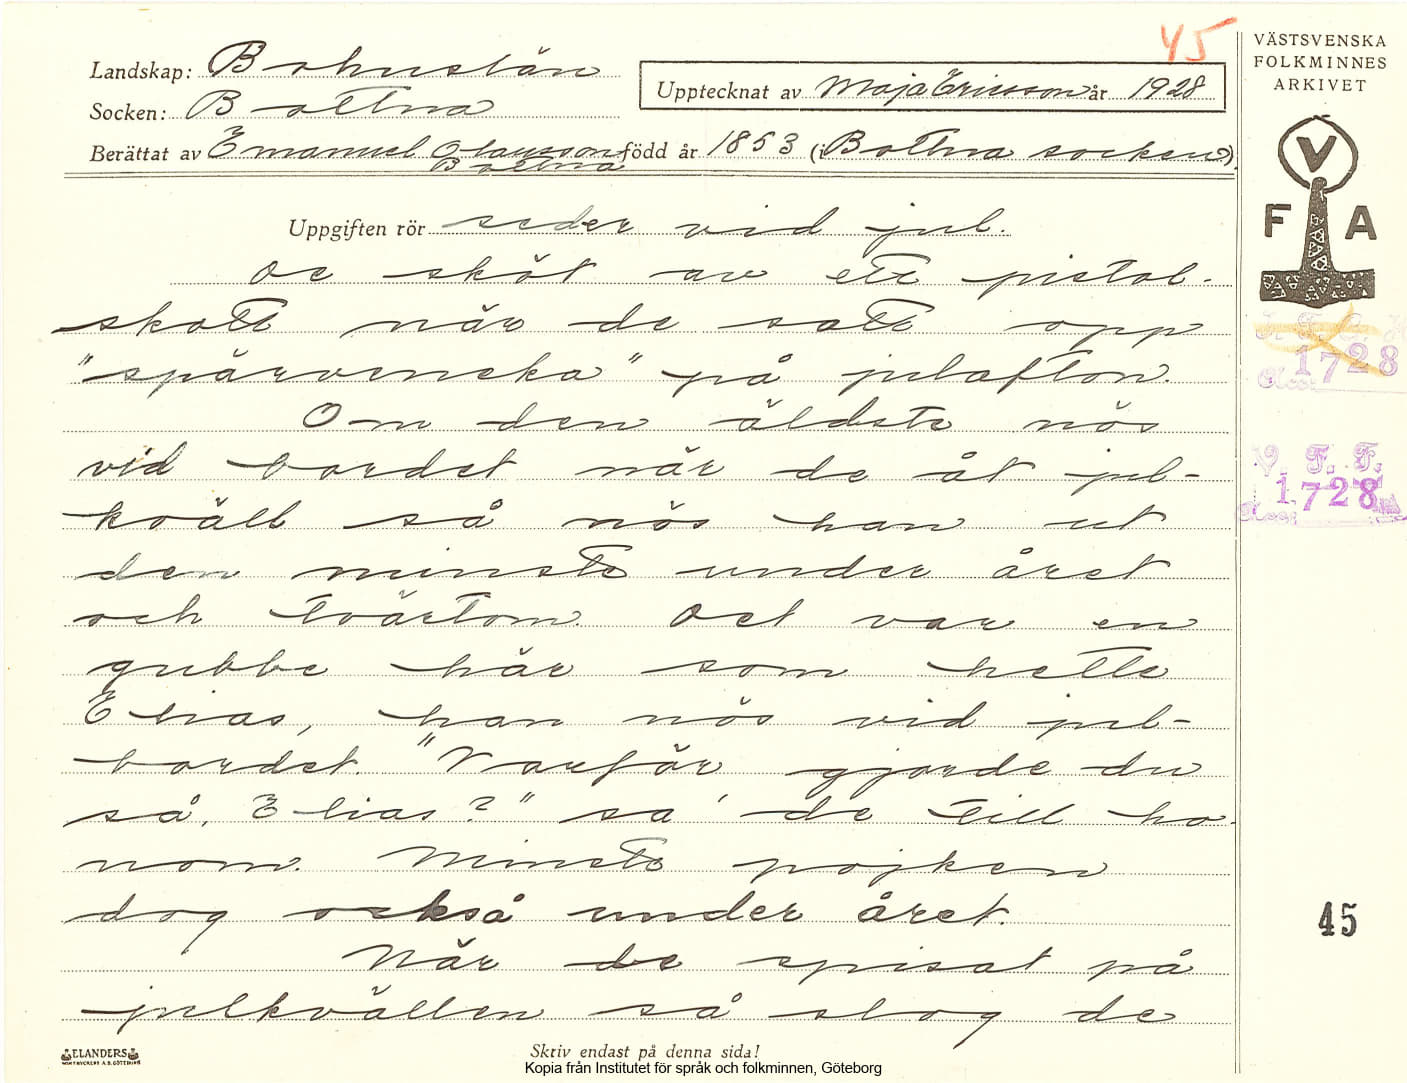 45
VÄSTSVENSKA
FOLKMINNES
ARKIVET
Landskap: Bohuslän
Upptecknat av Maja Ericsson år 1928
Socken: Bottna
Berättat av Emanuel Olausson född år 1853 (i Bottna socken)
Bottna
V
F A
Uppgiften rör seder vid jul.
De sköt av ett pistol-
skott när de satt opp
"spärvineka" på julafton.
Om den äldste nös
vid bordet när de åt jul-
kväll så nös han ut
den minste under året
och tvärtom. Det var en
gubbe här som hette
Elias, han nös vid jul-
bordet. "Varför gjorde du
så, Elias?" sa' de till ho-
nom. Minste pojken
dog också under året.
När de spisat på
julkvällen så slog de
1728
Acc:
V. F. F.
1728
Acc:
45
ELANDERS
Skriv endast på denna sida!
Kopia från Institutet för språk och folkminnen, Göteborg